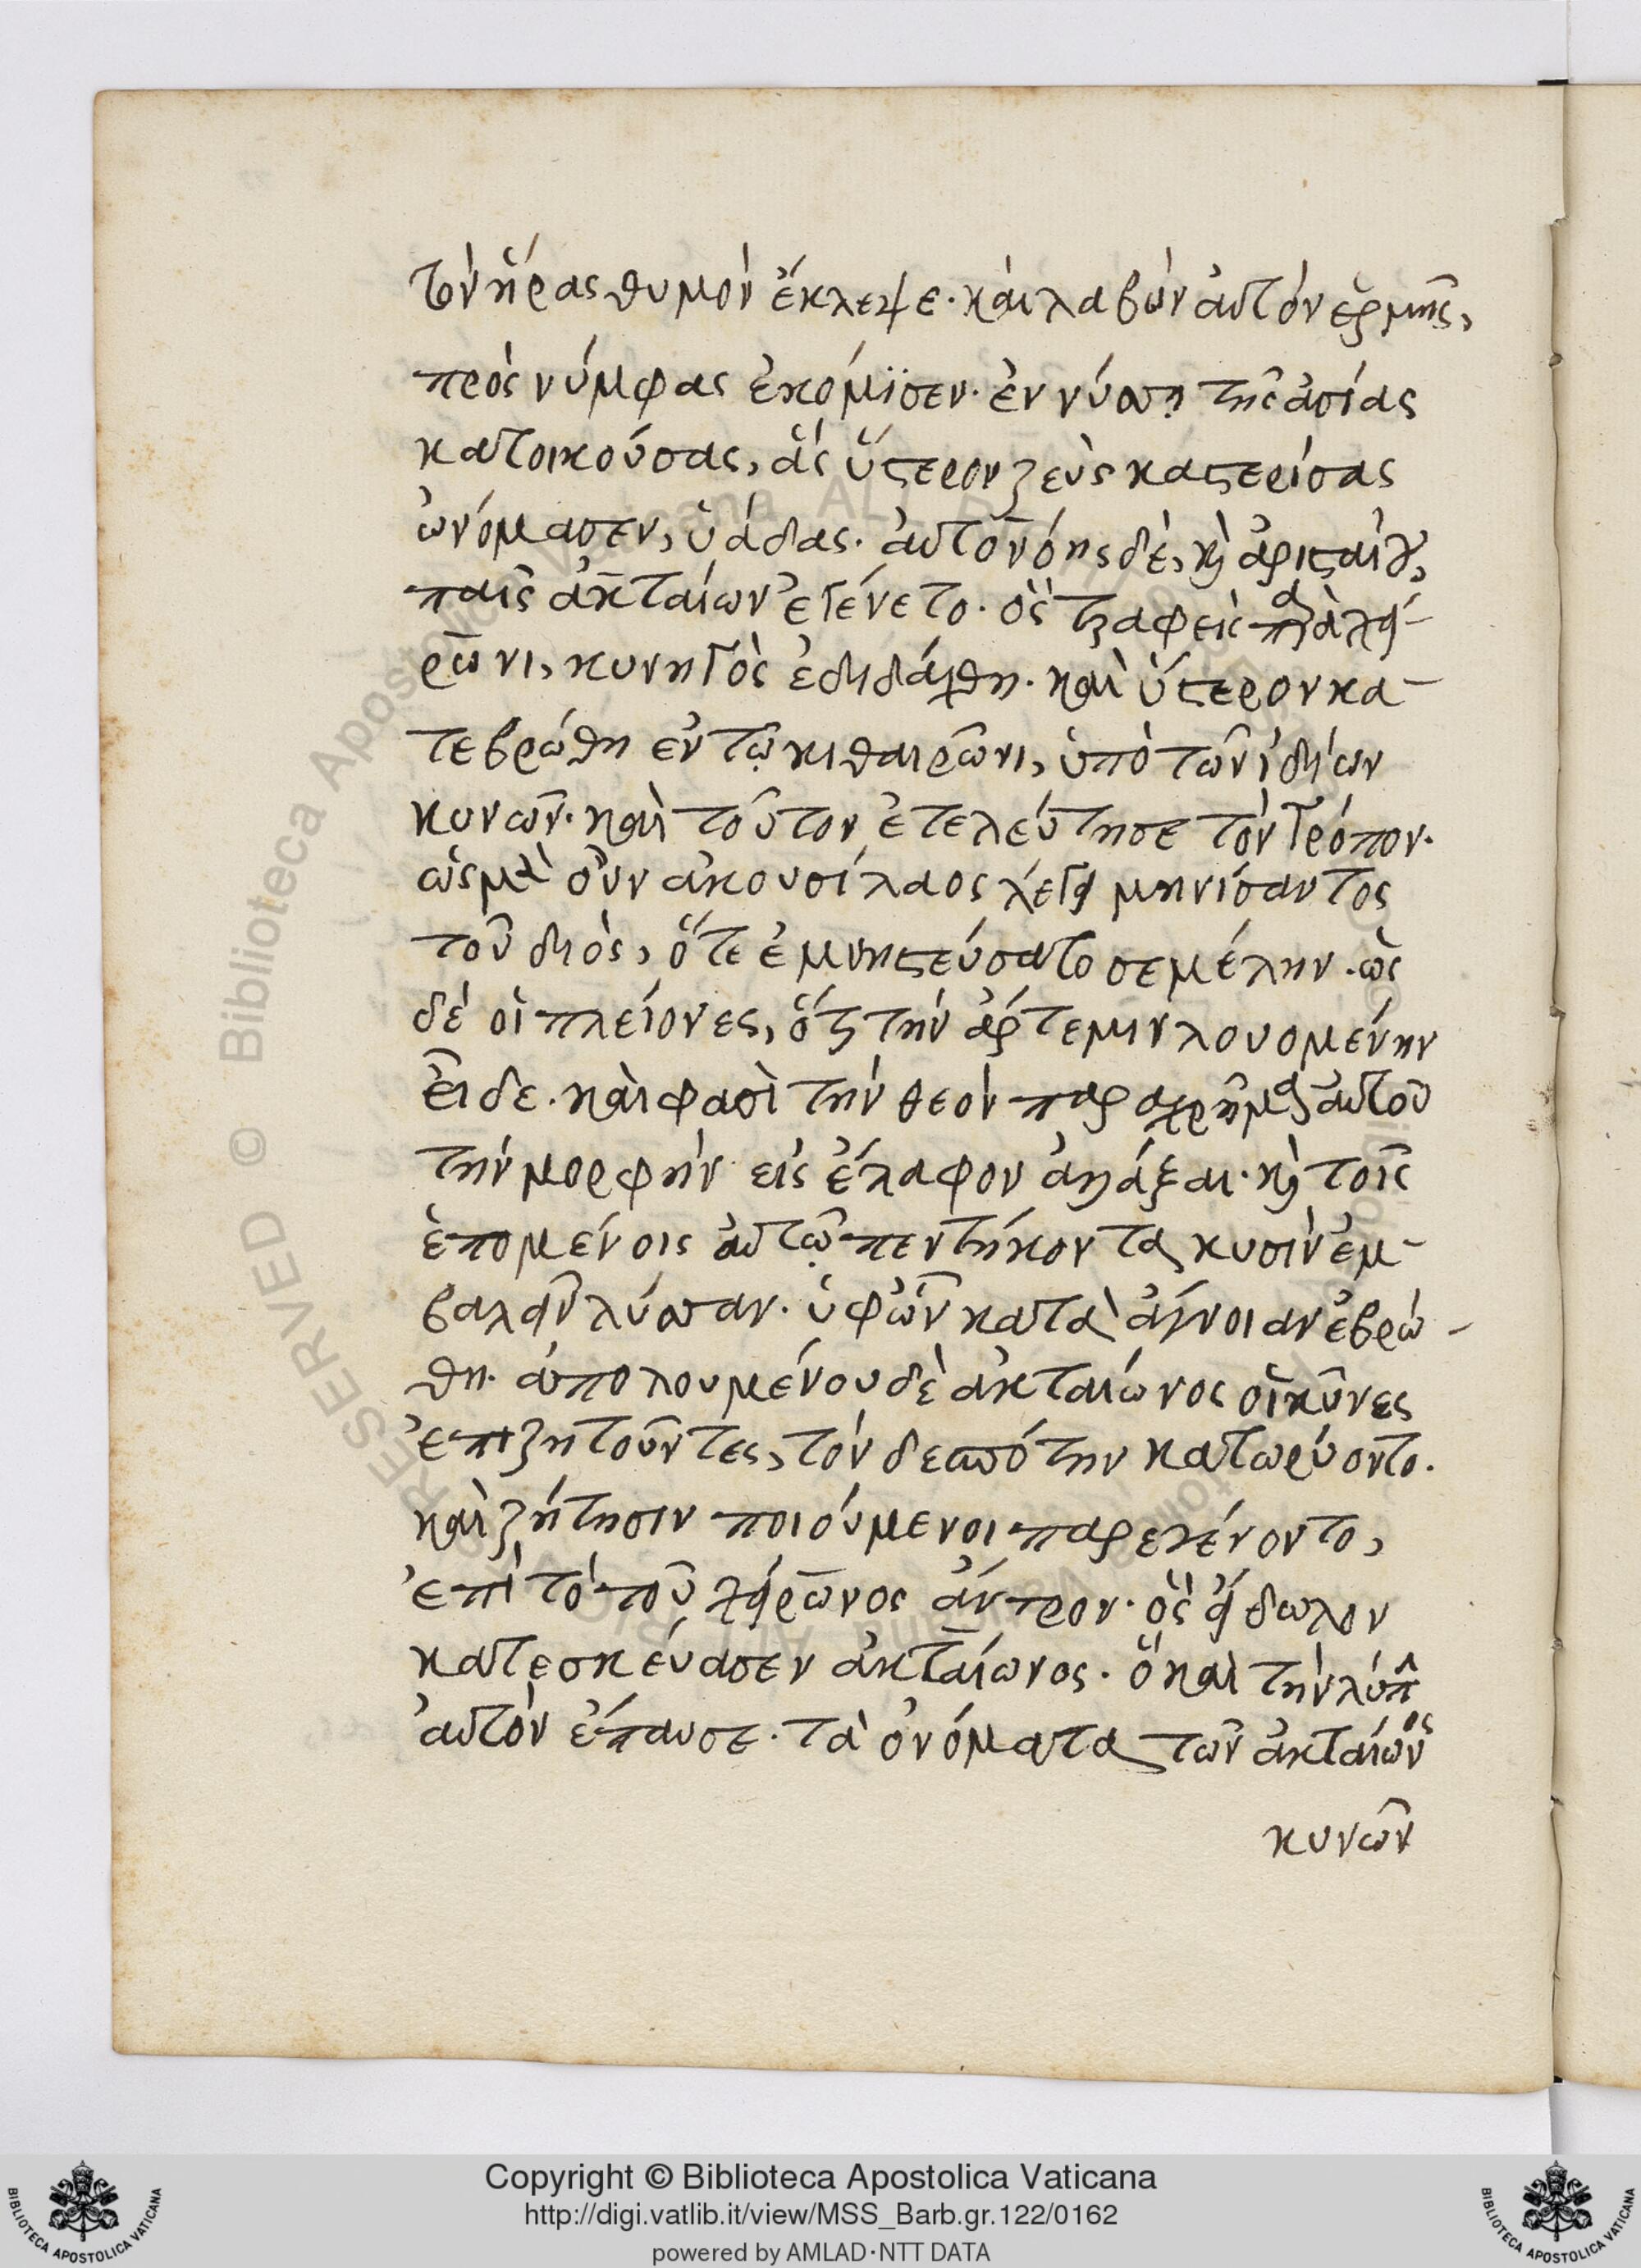 τὸν ἥρας θυμὸν ἔκλεψε. καὶ λαβὼν αὐτὸν ἑρμῆς,
πρὸς νύμφας ἐκόμϊσεν. ἐν νύσῃ τῆς ἀσίας
κατοικούσας, ἃς ὕστερον ζεὺς καστερίσας
ὠνόμασεν, ὑάδας. αὐτονόης δὲ, κὶ ἀρισταίου,
παῖς ἀκταίων ἐγένετο. ὃς τραφεὶς παρὰ χεί-
ρωνι, κυνηγὸς ἐδιδάχθη. καὶ ὕστερον κα-
τεβρώθη ἐν τῷ κιθαιρῶνι, ὑπὸ τῶν ἰδίων
κυνῶν. καὶ τοῦτον ἐτελεύτησε τὸν τρόπον.
ὡς μὲν οὖν ἀκουσίλαος λέγει μηνίσαντος
τοῦ διὸς, ὅτε ἐμνηστεύσατο σεμέλην. ὡς
δὲ οἱ πλείονες, ὅτι τὴν ἄρτεμιν λουομένην
εἶδε. καὶ φασὶ τὴν θεὸν παραχρῆμα αὐτοῦ
τὴν μορφὴν εἰς ἔλαφον ἀλλάξαι. κὶ τοῖς
ἑπομένοις αὐτῷ πεντήκοντα κυσὶν ἐμ-
βαλεῖν λύσσαν. ὑφῶν κατὰ ἄγνοιαν ἐβρώ-
θη. ἀπολουμένου δὲ ἀκταίωνος οἱ κύνες
ἐπιζητοῦντες, τὸν δεσπότην κατωρύοντο.
καὶ ζήτησιν ποιούμενοι παρεγένοντο,
ἐπὶ τὸ τοῦ χείρωνος ἄντρον. ὃς εἴδωλον
κατεσκεύασεν ἀκταίωνος. ὃ καὶ τὴν λύπ
αὐτὸν ἔπαυσε. τὰ ὀνόματα τῶν ἀκταίωνος
κυνῶν
Copyright © Biblioteca Apostolica Vaticana
http://digi.vatlib.it/view/MSS_Barb.gr.122/0162
powered by AMLAD·NTT DATA